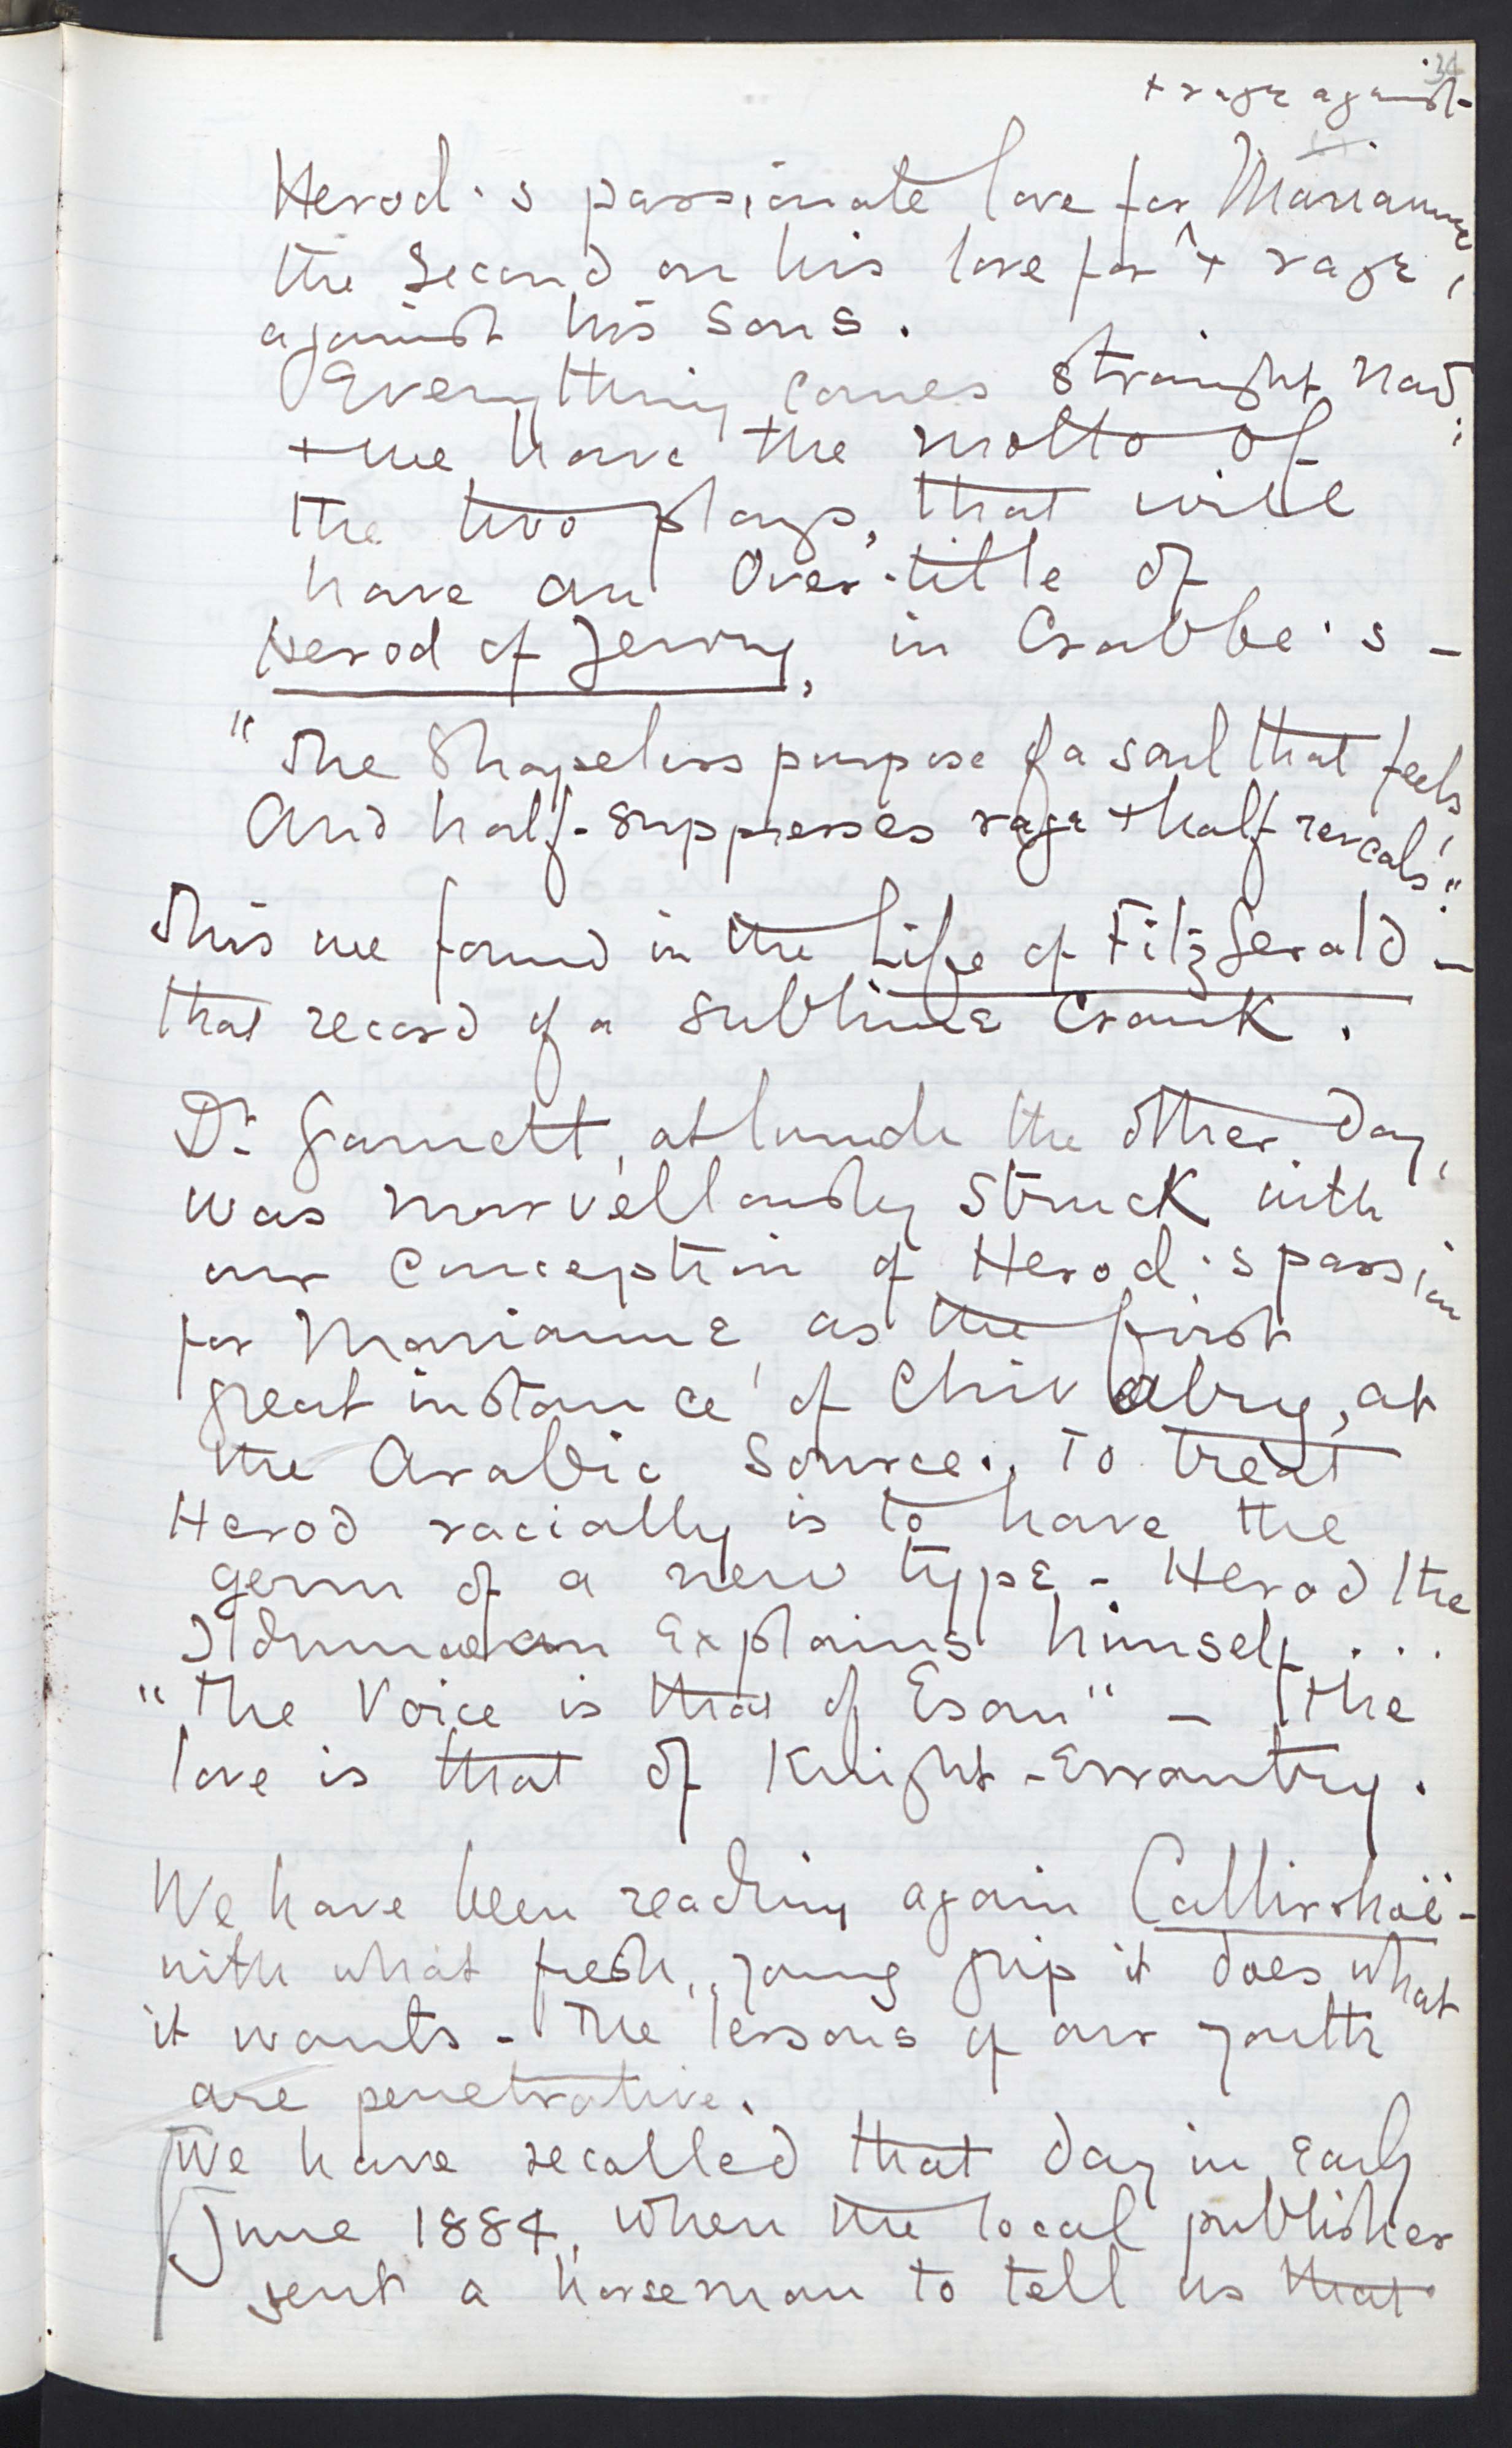 34
+ rage against
Herod's passionate love for Mariamne,
the Second on his love for + rage
against his Sons.
Everything comes straight now;
+ we have the motto of
the two plays, that will
have an Over-title of
Herod of Jewry, in Crabbe's -
"The Shapeless purpose of a soul that feels,
And half-suppresses rage + half reveals."
This we found in the Life of FitzGerald -
that record of a sublime Crank.
Dr. Garnett, at lunch the other day,
was marvellously struck with
our conception of Herod's passion
for Mariamne as the first
great instance of Chivalry, at
the Arabic Source. To treat
Herod racially is to have the
germ of a new type - Herod the
Idumaean explains himself...
"The Voice is that of Esau" - the
love is that of Knight-Errantry.
We have been reading again Callirrhoë -
with what fresh, young grip it does what
it wants - The lessons of our youth
are penetrative.
We have recalled that day in early
June 1884, when the local publisher
sent a horseman to tell us that